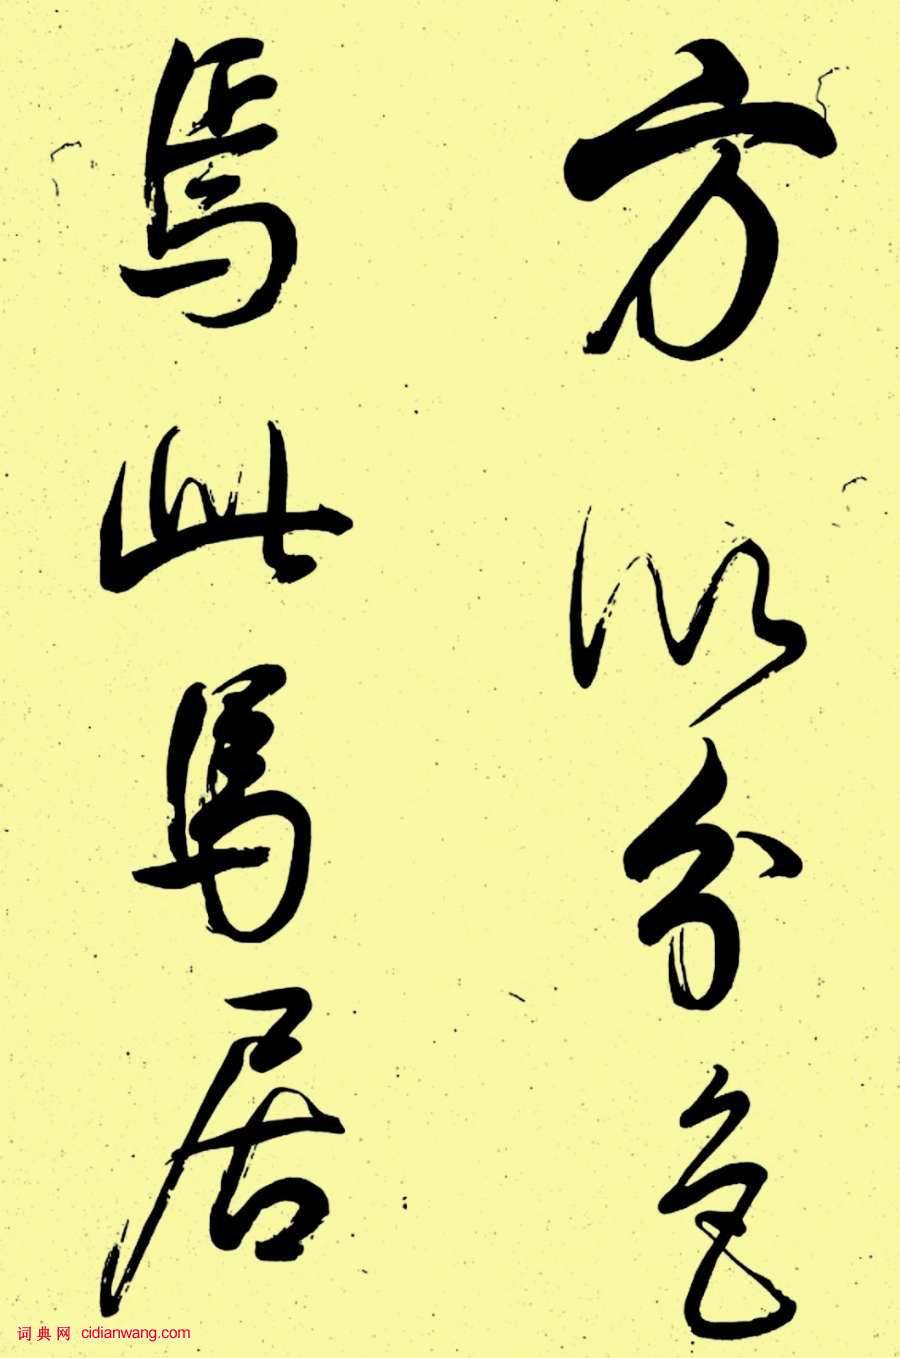 方以分色
焉此馬居
词典网 cidianwang.com